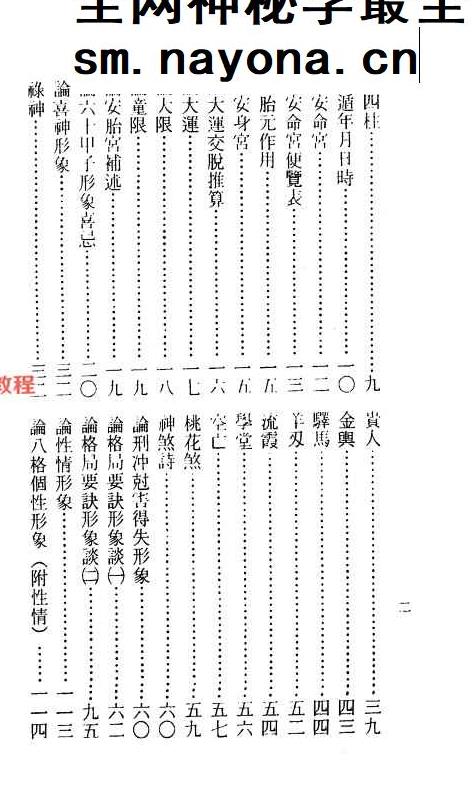 全网神秘学最全
sm.nayona.cn
四柱……九
遁年月日時……一〇
安命宮……一二
安命宮便覽表……一三
胎元作用……一五
安身宮……一五
大運交脫推算……一六
大運……一七
大限……一八
論童限……一九
安胎宮補述……一九
論六十甲子形象喜忌……二〇
論喜神形象……三二
祿神……三二
教程
貴人……三九
金輿……四三
驛馬……四四
羊刃……五二
流霞……五四
學堂……五六
空亡……五七
桃花煞……五九
神煞詩……六〇
論刑冲尅害得失形象……六〇
論格局要訣形象談㈠……六二
論格局要訣形象談㈡……九五
論性情形象……一一三
論八格個性形象（附性情）……一一四
二